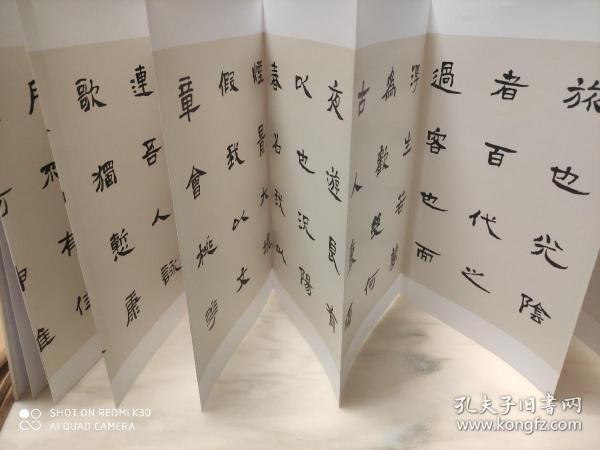 旅也光陰
者百代之
過客也而
浮生若夢
為歡幾何
古人
夜遊良有
以也況陽
春召我以
煙景大塊
假我以文
章會桃
連吾人詠
歌獨慙康
月不有佳
SHOT ON REDMI K30
AI QUAD CAMERA
孔夫子旧书网
www.kongfz.com